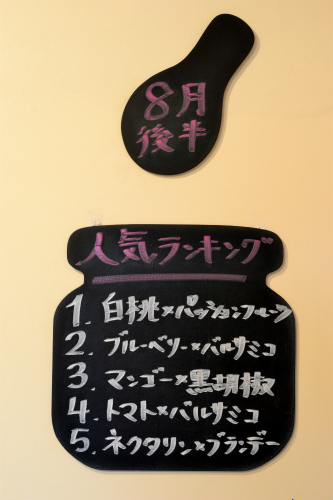 8月
後半
人気ランキング
1. 白桃×パッションフルーツ
2. ブルーベリー×バルサミコ
3. マンゴー×黒胡椒
4. トマト×バルサミコ
5. ネクタリン×ブランデー